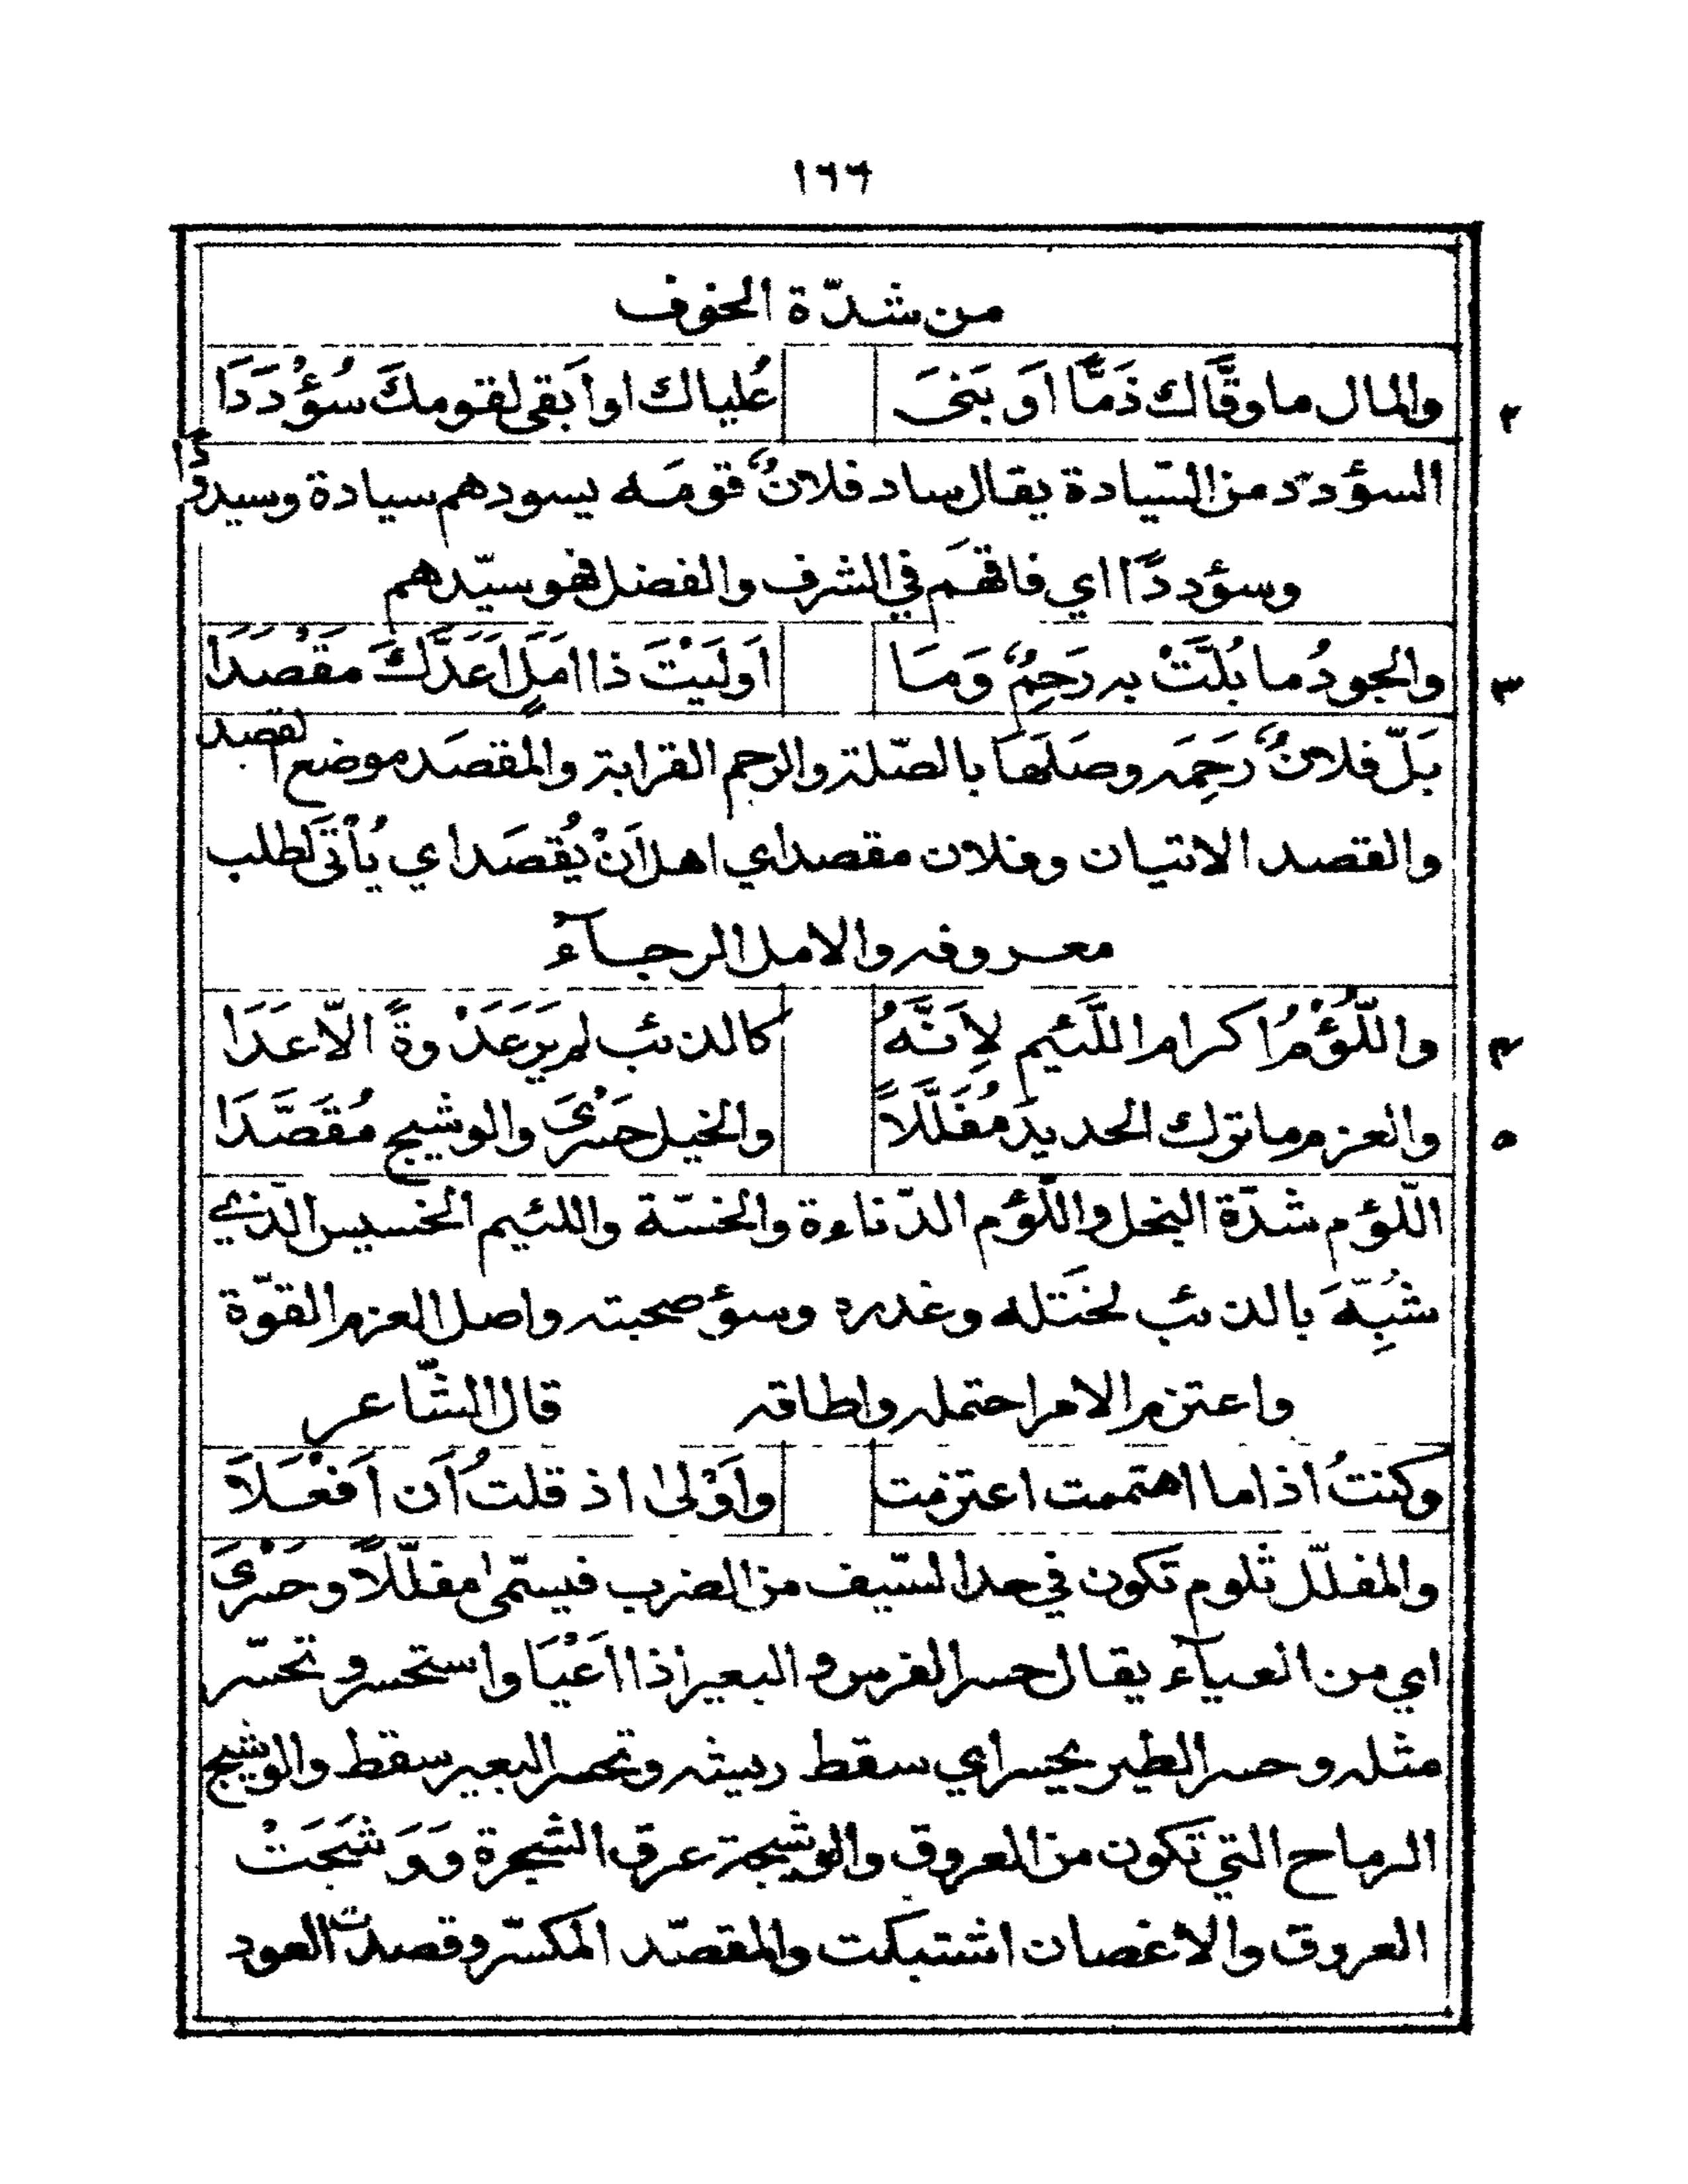 ١٦٦
من شدّة الخوف
٢ والمال ما وقَّاك ذَمًّا اَو بَنىَ عُلياك او اَبقى لقومكَ سُؤْدَدَا
السؤدد من السّيادة يقال ساد فلانٌ قومَه يسودهم سيادة وسيدودًا
وسؤددًا اي فاقهَم في الشرف والفضل فهو سيّدهم
٣ والجودُ ما بُلَّتْ به رَحِمٌ وَمَا اَولَيْتَ ذا اَمَلٍ اَعَدَّكَ مَقْصَدَا
بَلّ فلانٌ رَحِمَه وصَلَهَا بالصّلة والرحم القرابة والمقصَد موضع القصد
والقصد الاتيان وفلان مقصد اي اهل اَنْ يُقصَد اي يُأتىَ لطلب
معروفه والامل الرجآء
٤ واللّؤْمُ اكرام اللَّئيم لِاَنَّهُ كالذئب لم يرَ عَدْوةً الّا عَدَا
٥ والعزم ما ترك الحديدَ مُفَلَّلاً والخيل حَسْرىَ والوشيج مُقَصَّدَا
اللّؤم شدّة البخل واللّؤم الدّناءة والخسّة واللئيم الخسيس الدّني
شُبِّهَ بالذئب لختَله وغدره وسؤ صحبته واصل العزم القوّة
واعتزم الامر احتمله واطاقه قال الشّاعر
وكنتُ اذا ما اهتممت اعتزمت واَوْلىٰ اذ قلتُ اَن اَفْعَلَا
والمفلّل ثلوم تكون في حد السّيف من الضرب فيسمّىٰ مفلّلاً وحَسْرىَ
اي من العيآء يقال حسر الفرس والبعير اذا اَعْيَا واستحسر وتحسّر
مثله وحسر الطير يحيسر اي سقط ريشه وتحسر البعير سقط والوشيج
الرماح التي تكون من العروق والوشيجة عرق الشجرة وَوَشَجَتْ
العروق والاغصان اشتبكت والمقصّد المكسّر وقصدت العود